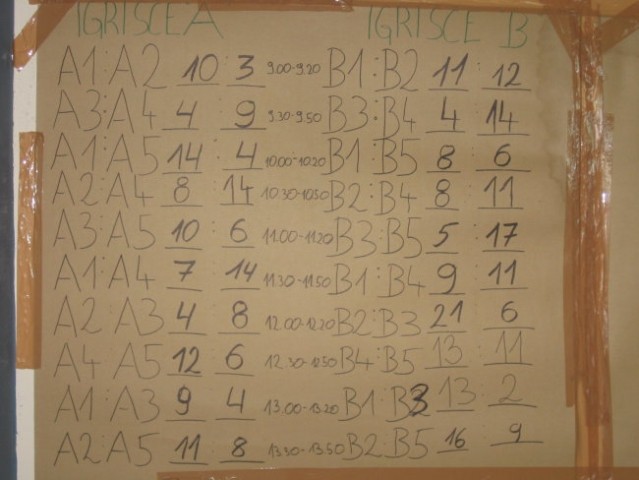 IGRISCE A IGRISCE B
A1:A2 10:3 9.00-9.20 B1:B2 11:12
A3:A4 4:9 9.30-9.50 B3:B4 4:14
A1:A5 14:4 10.00-10.20 B1:B5 8:6
A2:A4 8:14 10.30-10.50 B2:B4 8:11
A3:A5 10:6 11.00-11.20 B3:B5 5:17
A1:A4 7:14 11.30-11.50 B1:B4 9:11
A2:A3 4:8 12.00-12.20 B2:B3 21:6
A4:A5 12:6 12.30-12.50 B4:B5 13:11
A1:A3 9:4 13.00-13.20 B1:B3 13:2
A2:A5 11:8 13.30-13.50 B2:B5 16:9